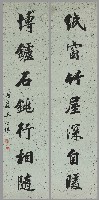 纸窗竹屋深自暖
博鑪石銚行相隨